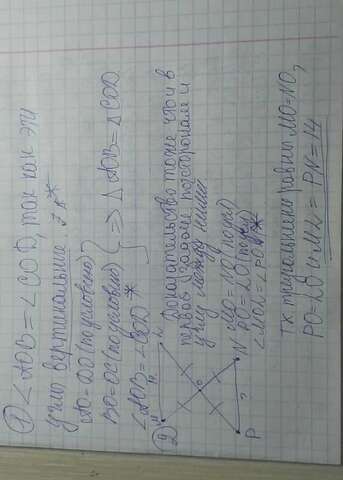 ① ∠AOB = ∠COD, так как эти
углы вертикальные
AO = DO (по условию)
BO = OC (по условию) } => △AOB = △COD
∠AOB = ∠COD
② Доказательство тоже, что и в
первой задаче по сторонам и
углу между ними
MO = NO (по усл)
PO = LO (по усл)
∠MOL = ∠PON
M
L
O
P
N
т.к треугольники равны MO = NO,
PO = LO и ML = PN = 14